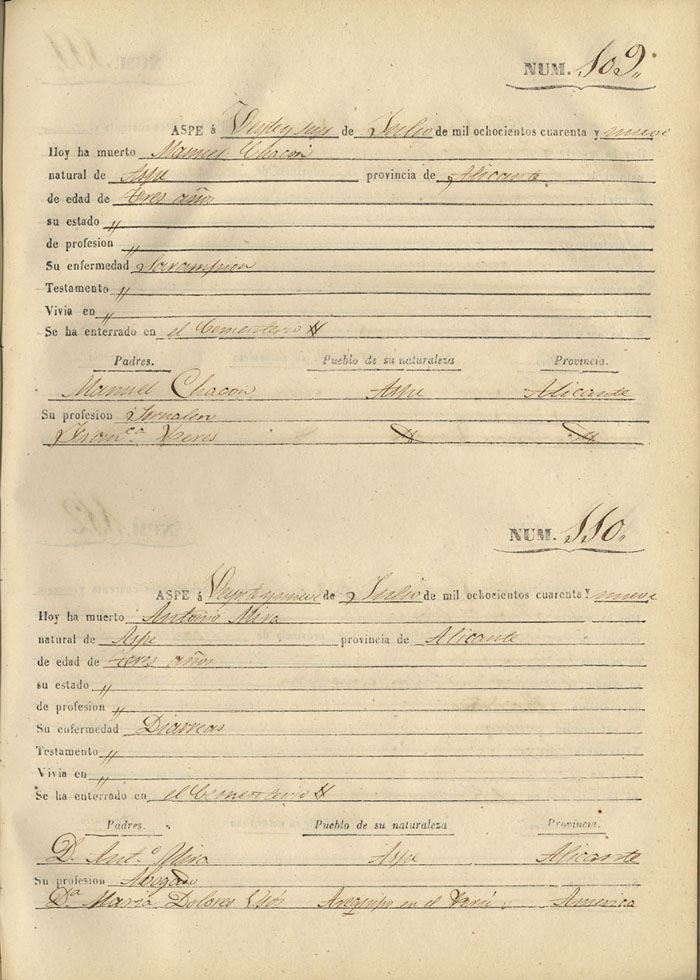 NUM. 109„
ASPE á Veyteyseis de Julio de mil ochocientos cuarenta y nueve
Hoy ha muerto Manuel Chacon
natural de Aspe provincia de Alicante
de edad de tres años
su estado „
de profesion „
Su enfermedad Sarampion
Testamento „
Vivia en „
Se ha enterrado en el Cementerio
Padres. Pueblo de su naturaleza Provincia.
Manuel Chacon Aspe Alicante
Su profesion Jornalero
Franca „ „
NUM. 110„
ASPE á Veyteynueve de Julio de mil ochocientos cuarenta y nueve
Hoy ha muerto Antonio Mira
natural de Aspe provincia de Alicante
de edad de tres años
su estado „
de profesion „
Su enfermedad Diarreas
Testamento „
Vivia en „
Se ha enterrado en el Cementerio
Padres. Pueblo de su naturaleza Provincia.
D. Ant.º Mira Aspe Alicante
Su profesion Abogado
Dª Maria Dolores Arequipa en el Perú America